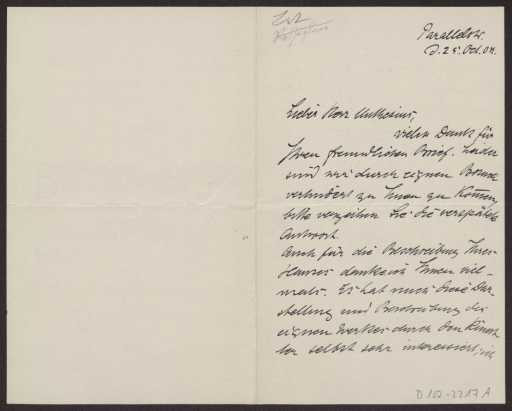 Parallelstr.
d. 25. Oct. 04.
Lieber Herr Muthesius,
vielen Dank für
Ihren freundlichen Brief. Leider
sind wir durch eignen Besuch
verhindert zu Ihnen zu kommen,
bitte verzeihen Sie die verspätete
Antwort.
Auch für die Beschreibung Ihres
Hauses danke ich Ihnen viel-
mals. Es hat mich diese Dar-
stellung und Beschreibung des
eignen Werkes durch den Künst-
ler selbst sehr interessiert, ich
D 102-2217 A